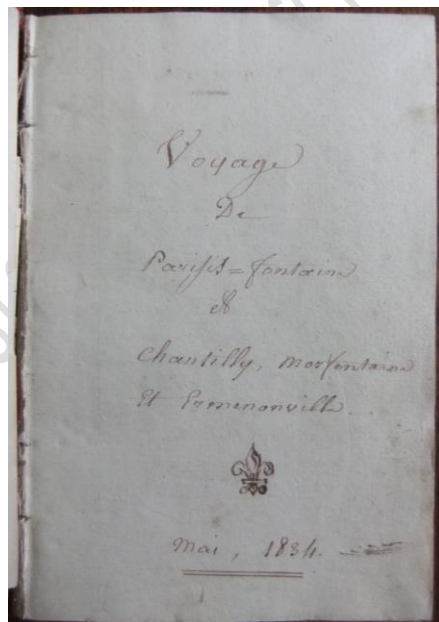 Voyage
De
Parisis=fontaine
et
Chantilly, Morfontaine
Et Ermenonville.
Mai, 1834.